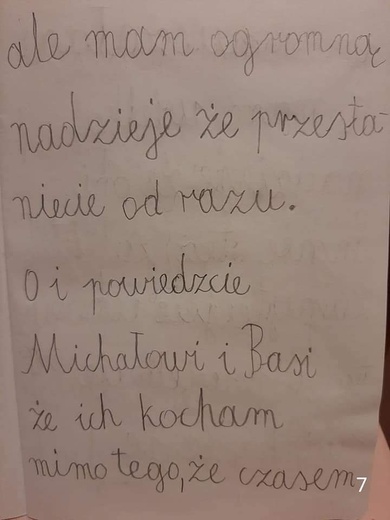 ale mam ogromną
nadzieje że przesta-
niecie od razu.
O i powiedzcie
Michałowi i Basi
że ich kocham
mimo tego, że czasem
7